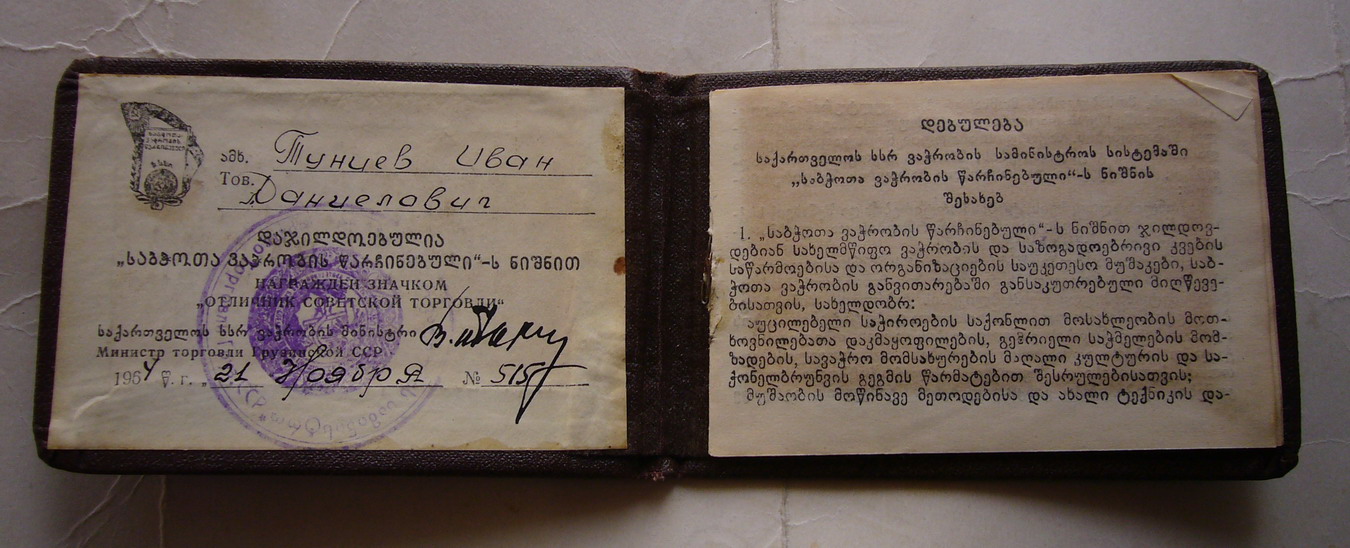 ამხ. Туниев Иван
Тов. Даниелович
დაჯილდოებულია
„საბჭოთა ვაჭრობის წარჩინებული“-ს ნიშნით
НАГРАЖДЕН ЗНАЧКОМ
„ОТЛИЧНИК СОВЕТСКОЙ ТОРГОВЛИ“
საქართველოს სსრ ვაჭრობის მინისტრი
Министр торговли Грузинской ССР
1964 წ. г. „21 Ноября № 515
დებულება
საქართველოს სსრ ვაჭრობის სამინისტროს სისტემაში
„საბჭოთა ვაჭრობის წარჩინებული“-ს ნიშნის
შესახებ
1. „საბჭოთა ვაჭრობის წარჩინებული“-ს ნიშნით ჯილდოვ-
დებიან სახელმწიფო ვაჭრობის და საზოგადოებრივი კვების
საწარმოებისა და ორგანიზაციების საუკეთესო მუშაკები, საბ-
ჭოთა ვაჭრობის განვითარებაში განსაკუთრებული მიღწევე-
ბისათვის, სახელდობრ:
აუცილებელი საჭიროების საქონლით მოსახლეობის მოთ-
ხოვნილებათა დაკმაყოფილების, გემრიელი საჭმელების მომ-
ზადების, სავაჭრო მომსახურების მაღალი კულტურის და სა-
ქონელბრუნვის გეგმის წარმატებით შესრულებისათვის;
მუშაობის მოწინავე მეთოდებისა და ახალი ტექნიკის და-